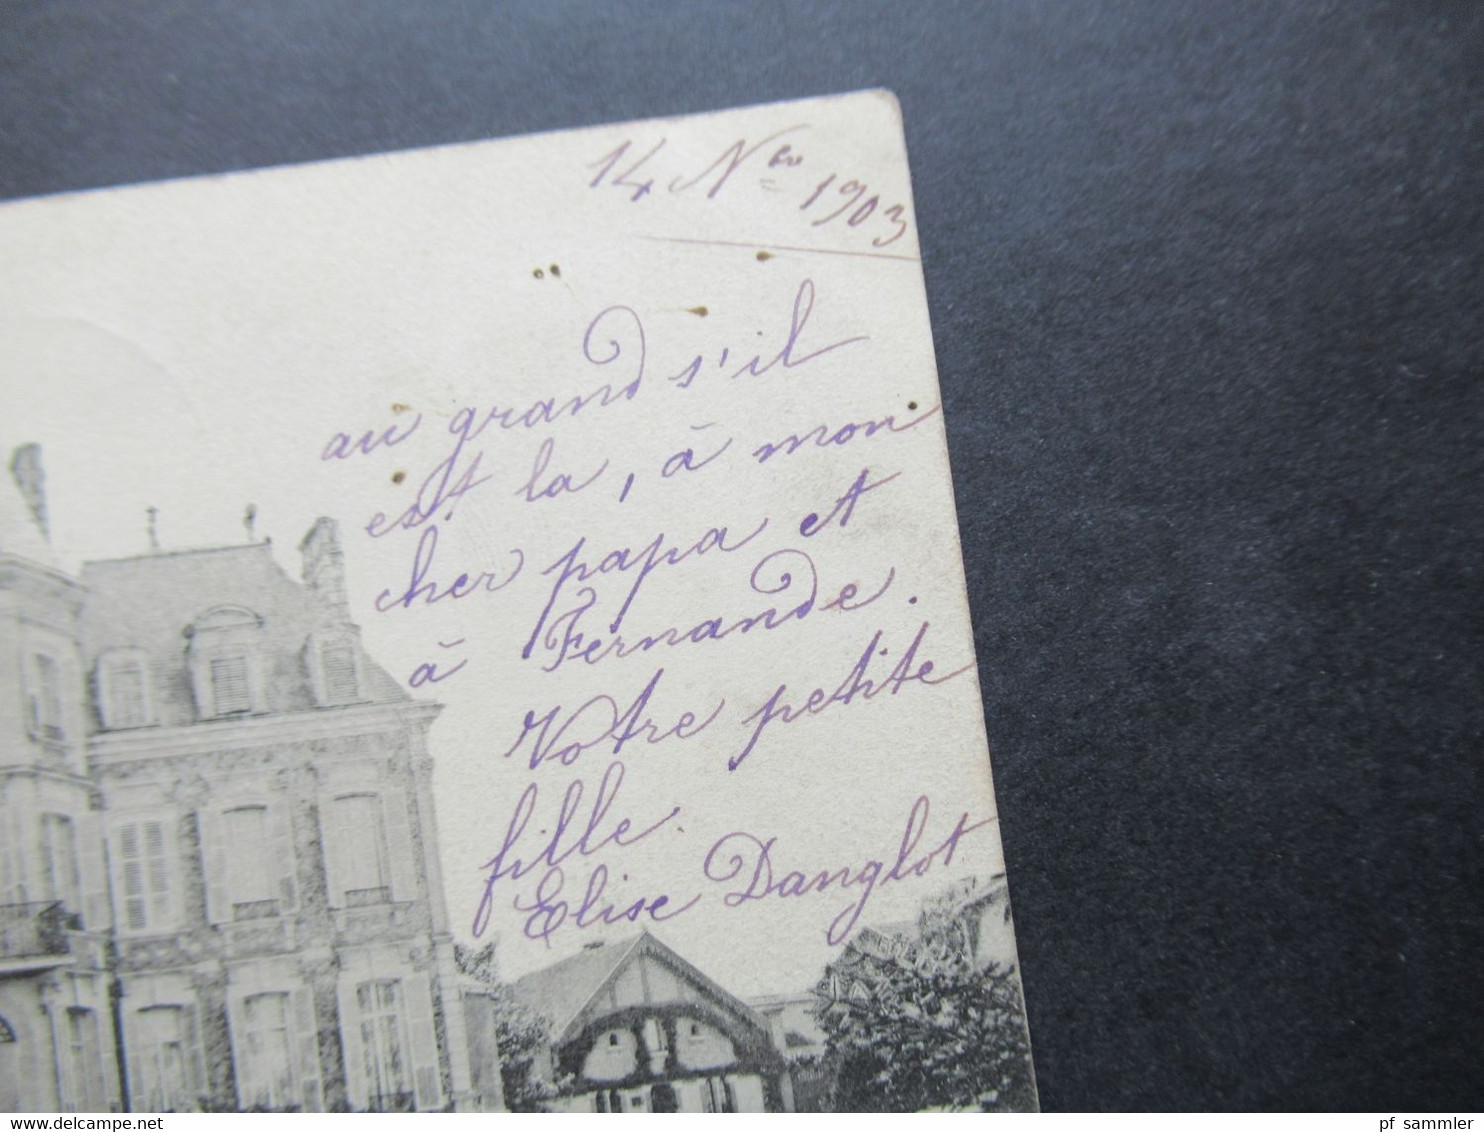 14 Nbre 1903
au grand s'il
est la, à mon
cher papa et
à Fernande.
Votre petite
fille.
Elise Danglot
www.delcampe.net
pf_sammler